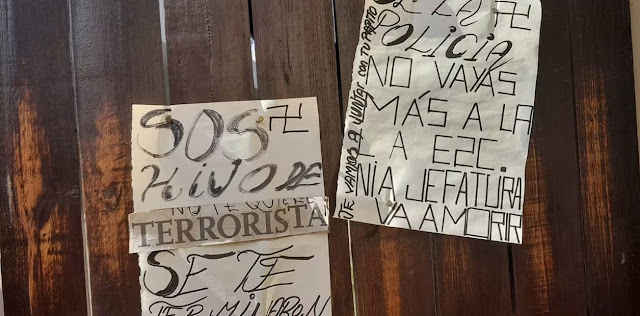 SOS
HIJO DE
NO TE
TERRORISTA
SE TE
TERMINARON
LA
POLICIA
NO VAYAS
MÁS A LA
A E2C.
NI A JEFATURA
VA A MORIR
TE VAMOS A JUNTAR CON TU PAPITO